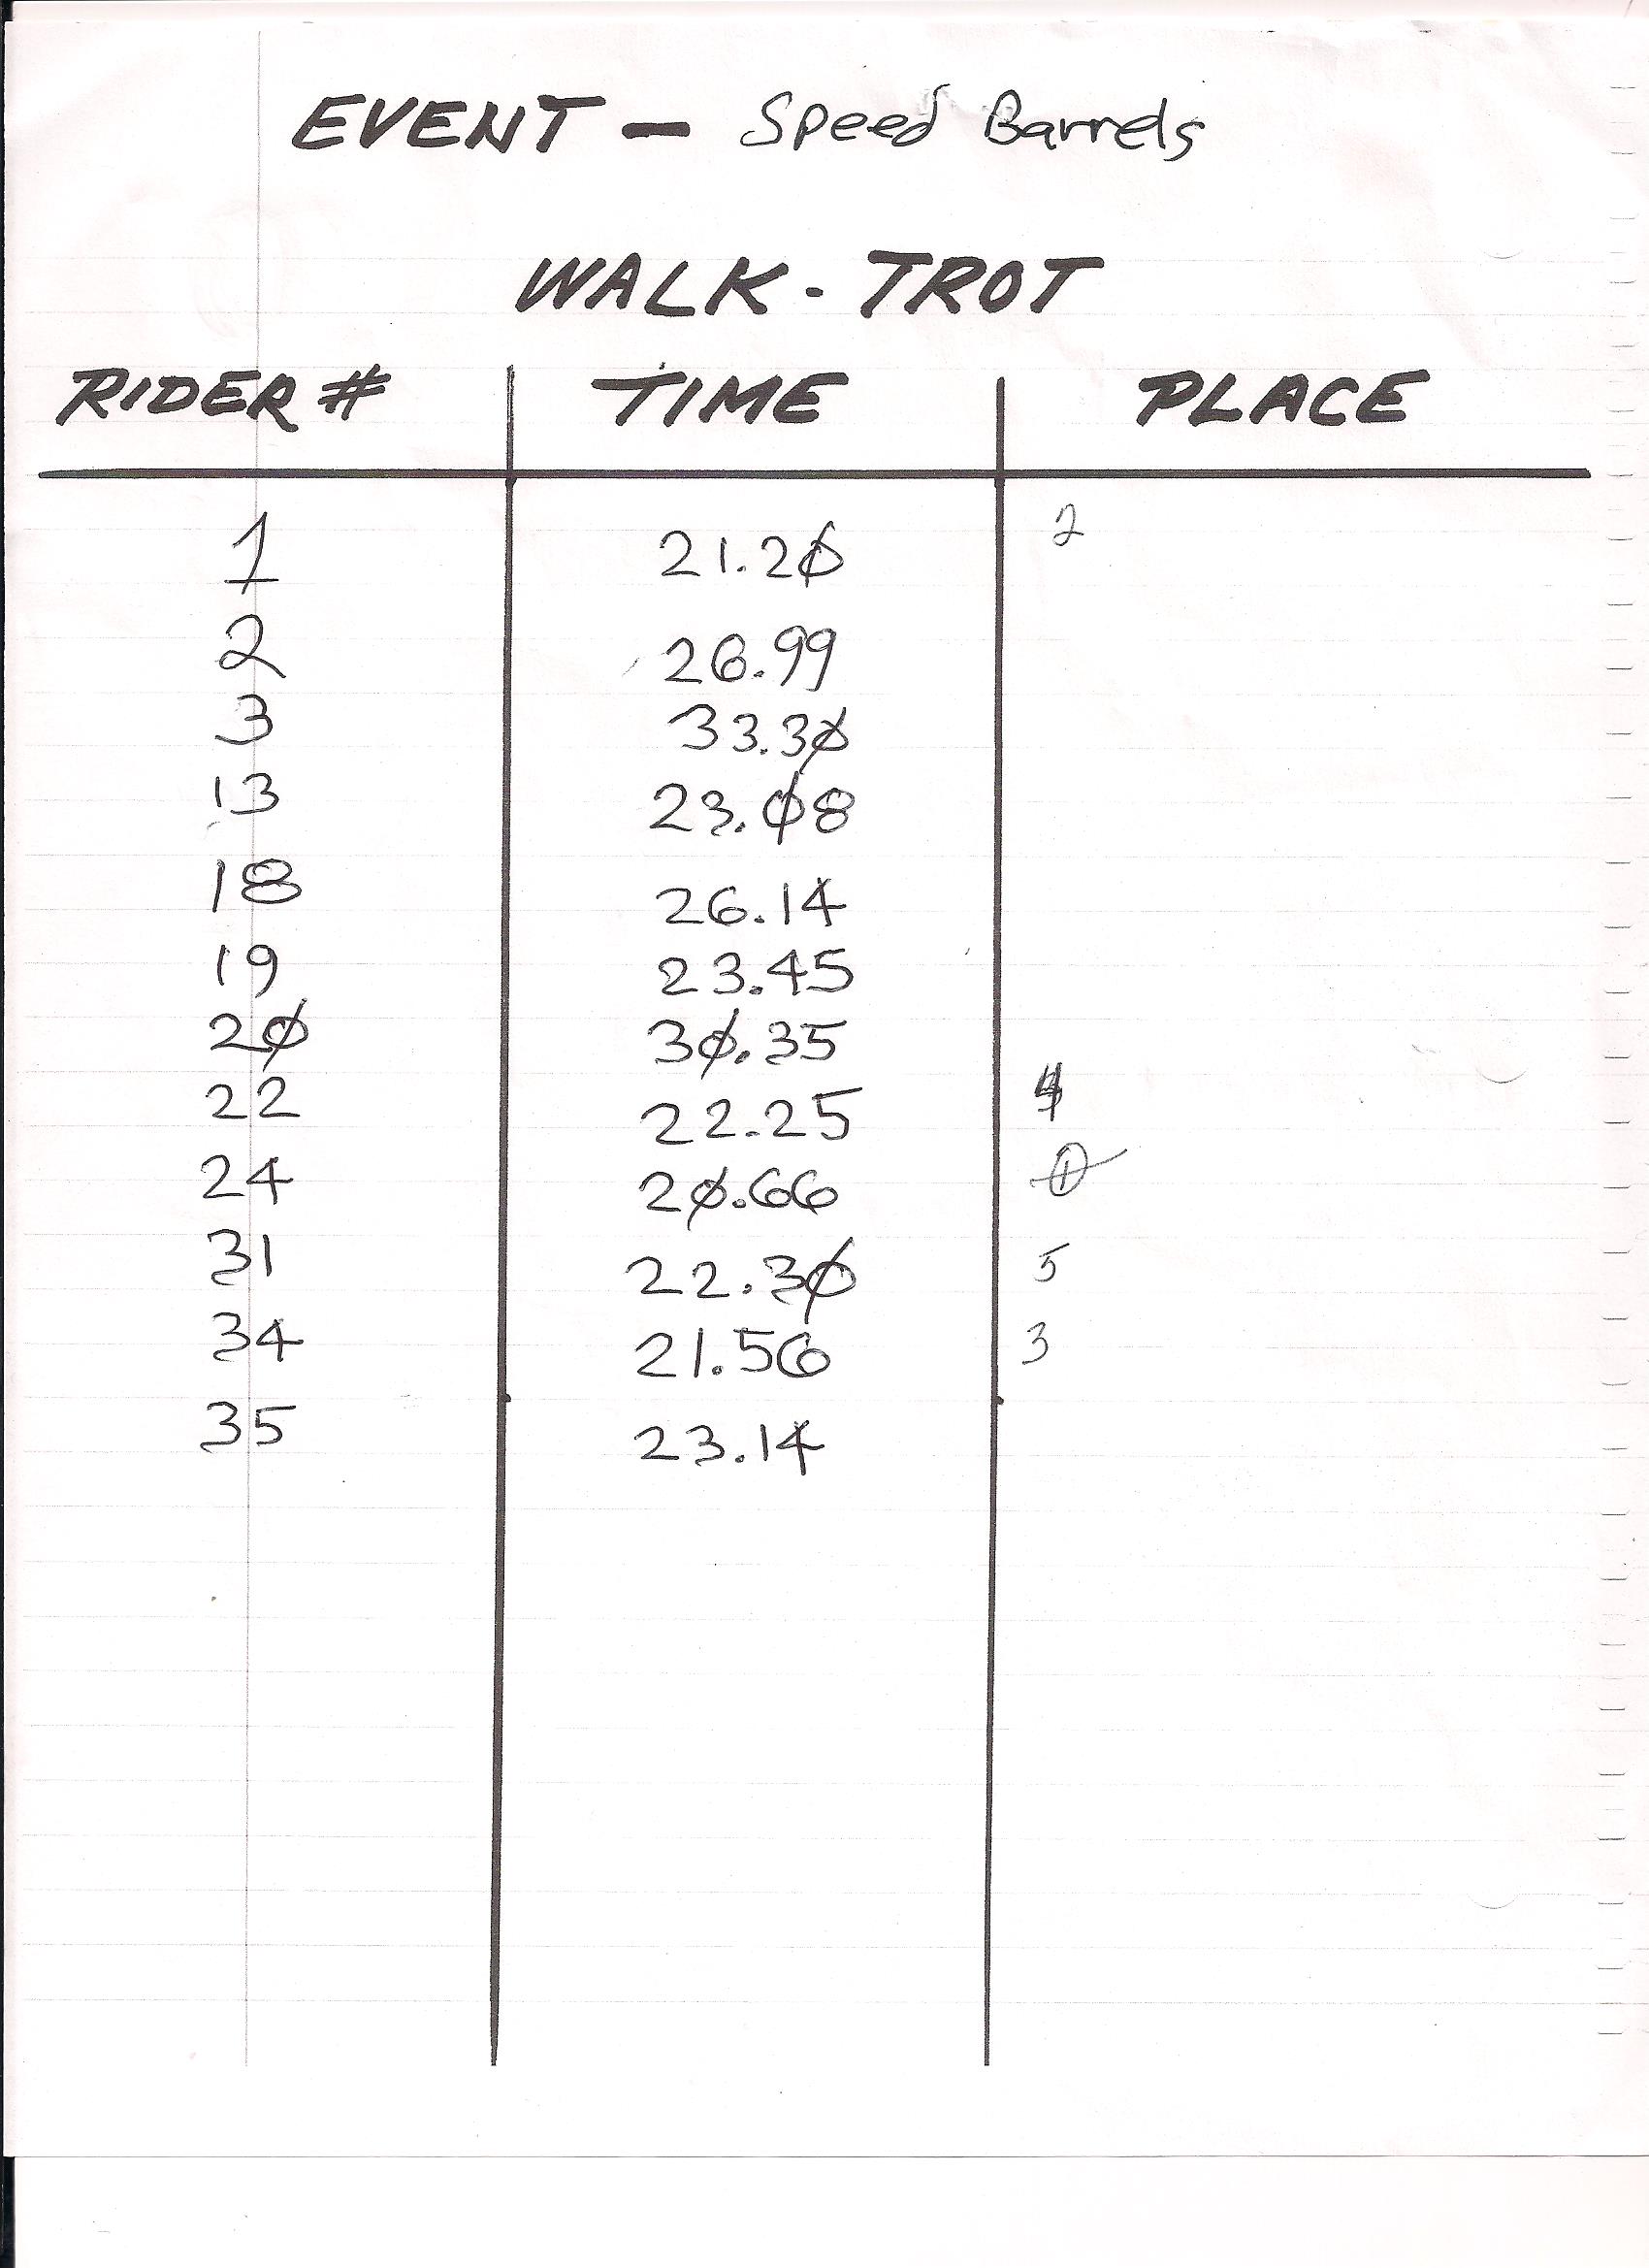 EVENT - Speed Barrels
WALK - TROT
RIDER # TIME PLACE
1 21.20 2
2 26.99
3 33.30
13 23.08
18 26.14
19 23.45
20 30.35
22 22.25 4
24 20.66 1
31 22.30 5
34 21.56 3
35 23.14